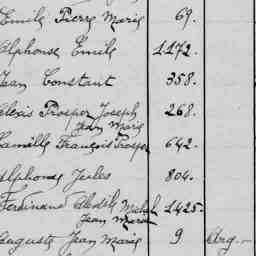 Emile Pierre Marie 69.
Alphonse Emile 1172.
Jean Constant 358.
Alexis Prosper Joseph 268.
Jean Marie
Camille François Prosper 642.
Alphonse Jules 804.
Ferdinand Michel 1425.
Jean Marie
Auguste Jean Marie 9 Arg.